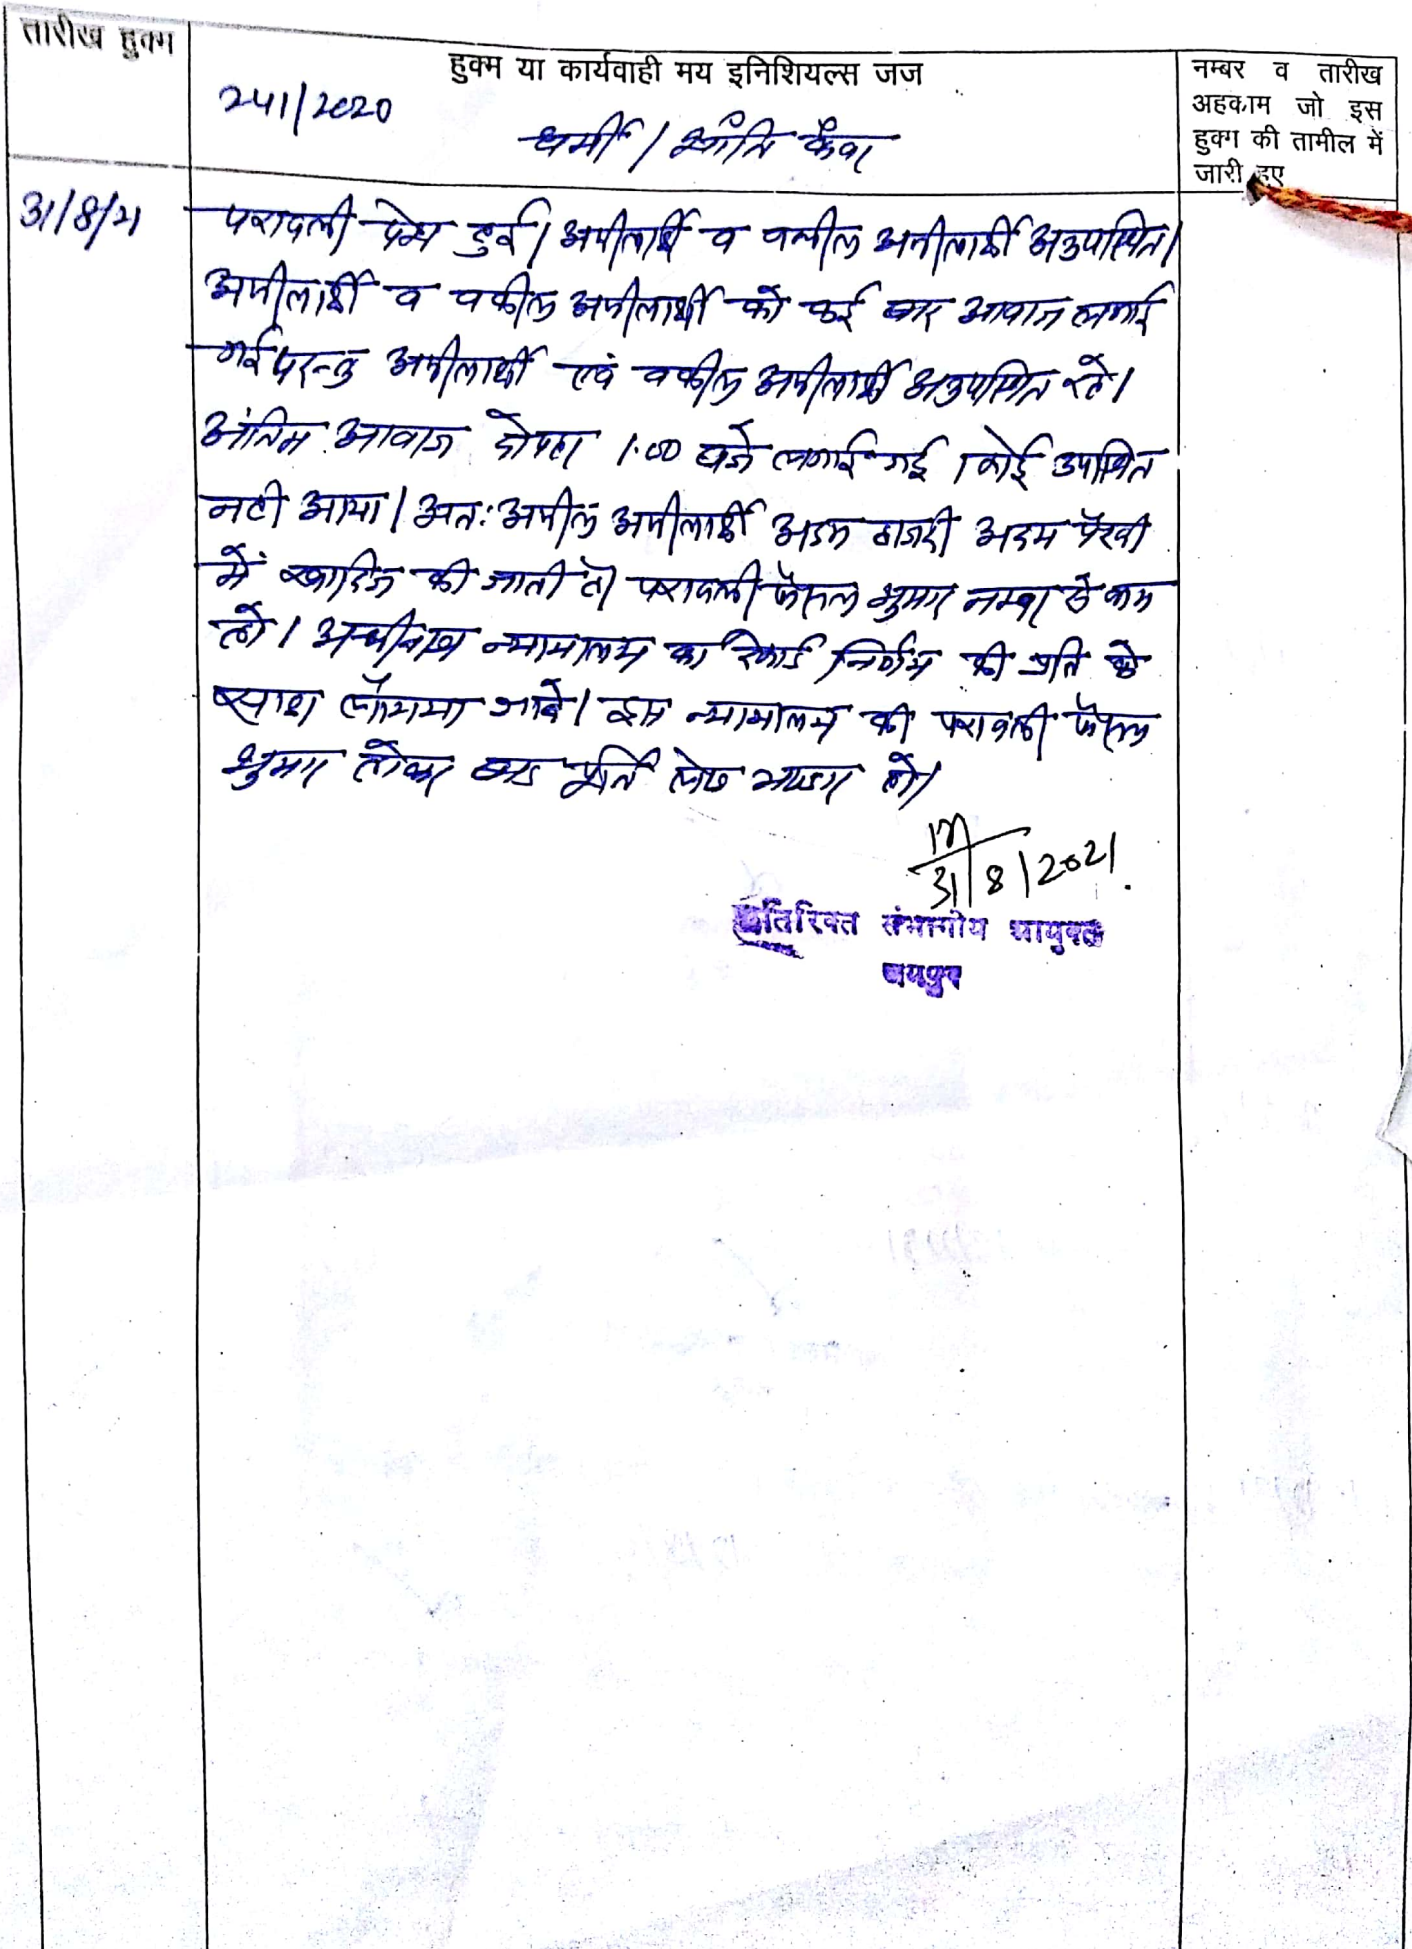 तारीख हुक्म
हुक्म या कार्यवाही मय इनिशियल्स जज
नम्बर व तारीख
अहकाम जो इस
हुक्म की तामील में
जारी हुए
241/2020
धर्मी / शांति कँवर
31/8/21
पत्रावली पेश हुई। अपीलार्थी व वकील अपीलार्थी अनुपस्थित।
अपीलार्थी व वकील अपीलार्थी को कई बार आवाज लगाई
गई परन्तु अपीलार्थी एवं वकील अपीलार्थी अनुपस्थित रहे।
अंतिम आवाज दोपहर 1.00 बजे लगाई गई। कोई उपस्थित
नही आया। अतः अपील अपीलार्थी अदम हाजरी अदम पैरवी
में खारिज की जाती है। पत्रावली फैसल शुमार नम्बर से कम
हो। अधीनस्थ न्यायालय का रिकार्ड निर्णय की प्रति के
साथ लौटाया जावे। इस न्यायालय की पत्रावली फैसल
शुमार होकर बाद पूर्ति लेख भण्डार हो।
31/8/2021.
अतिरिक्त संभागीय आयुक्त
जयपुर